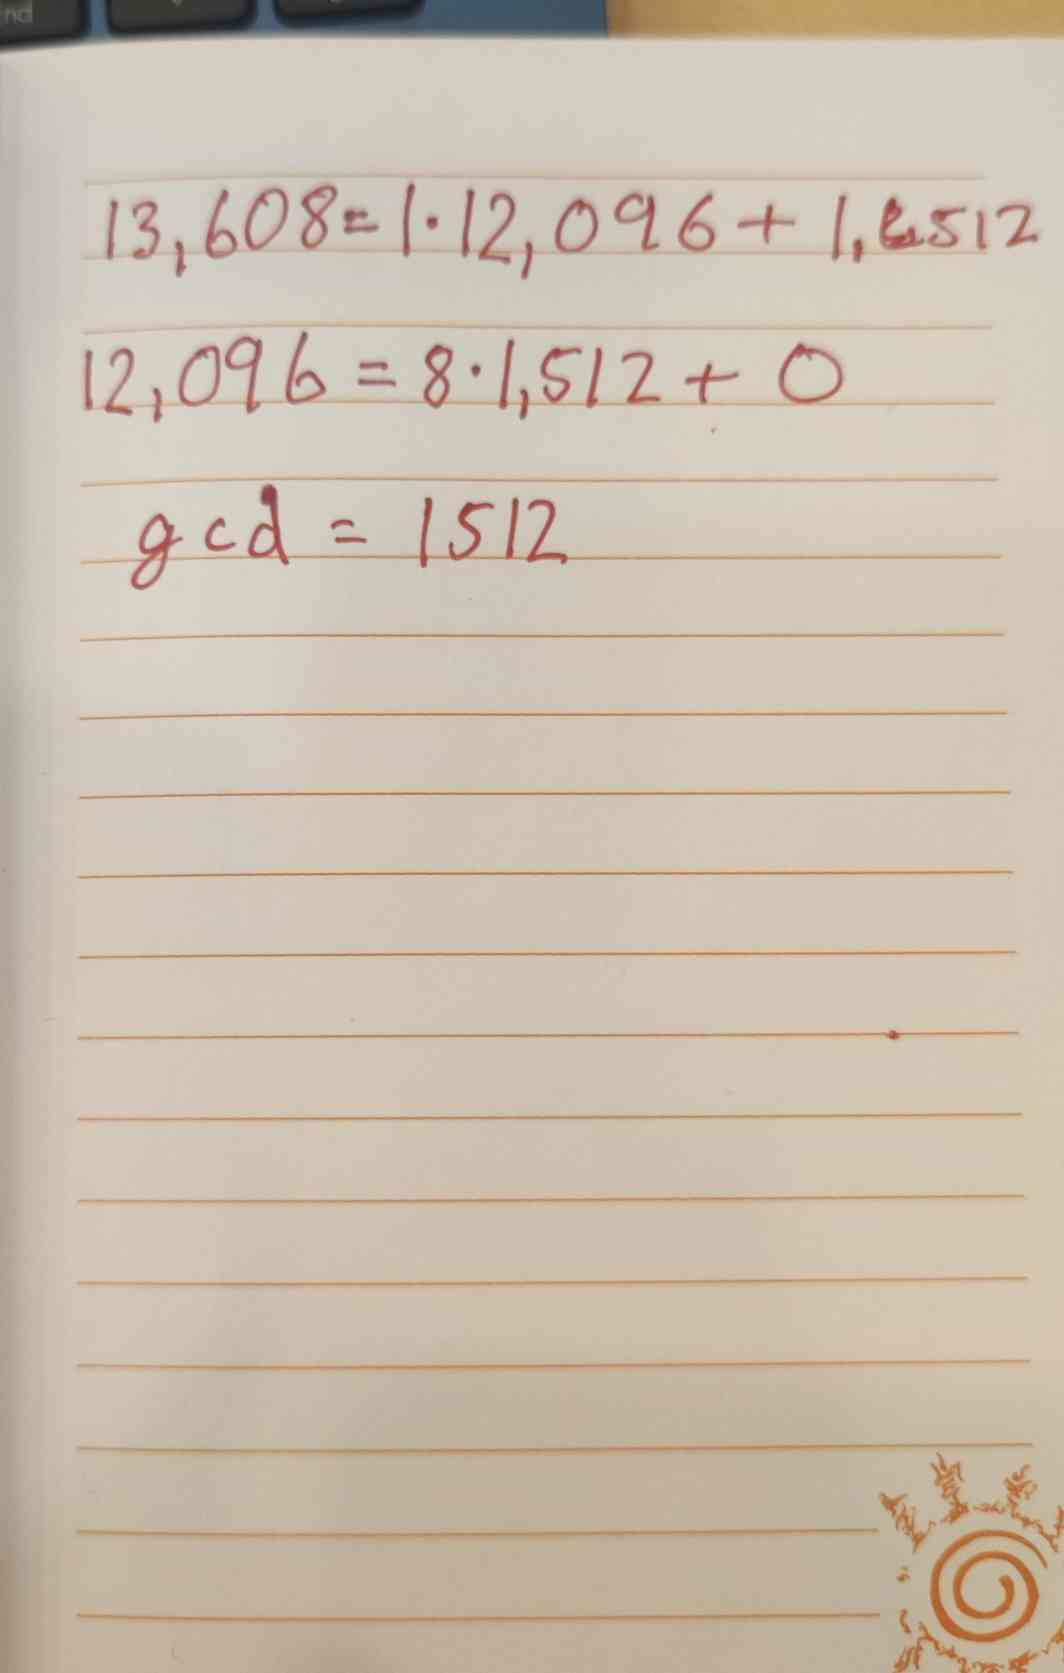 nd
13,608=1·12,096+1,512
12,096=8·1,512+0
gcd=1512